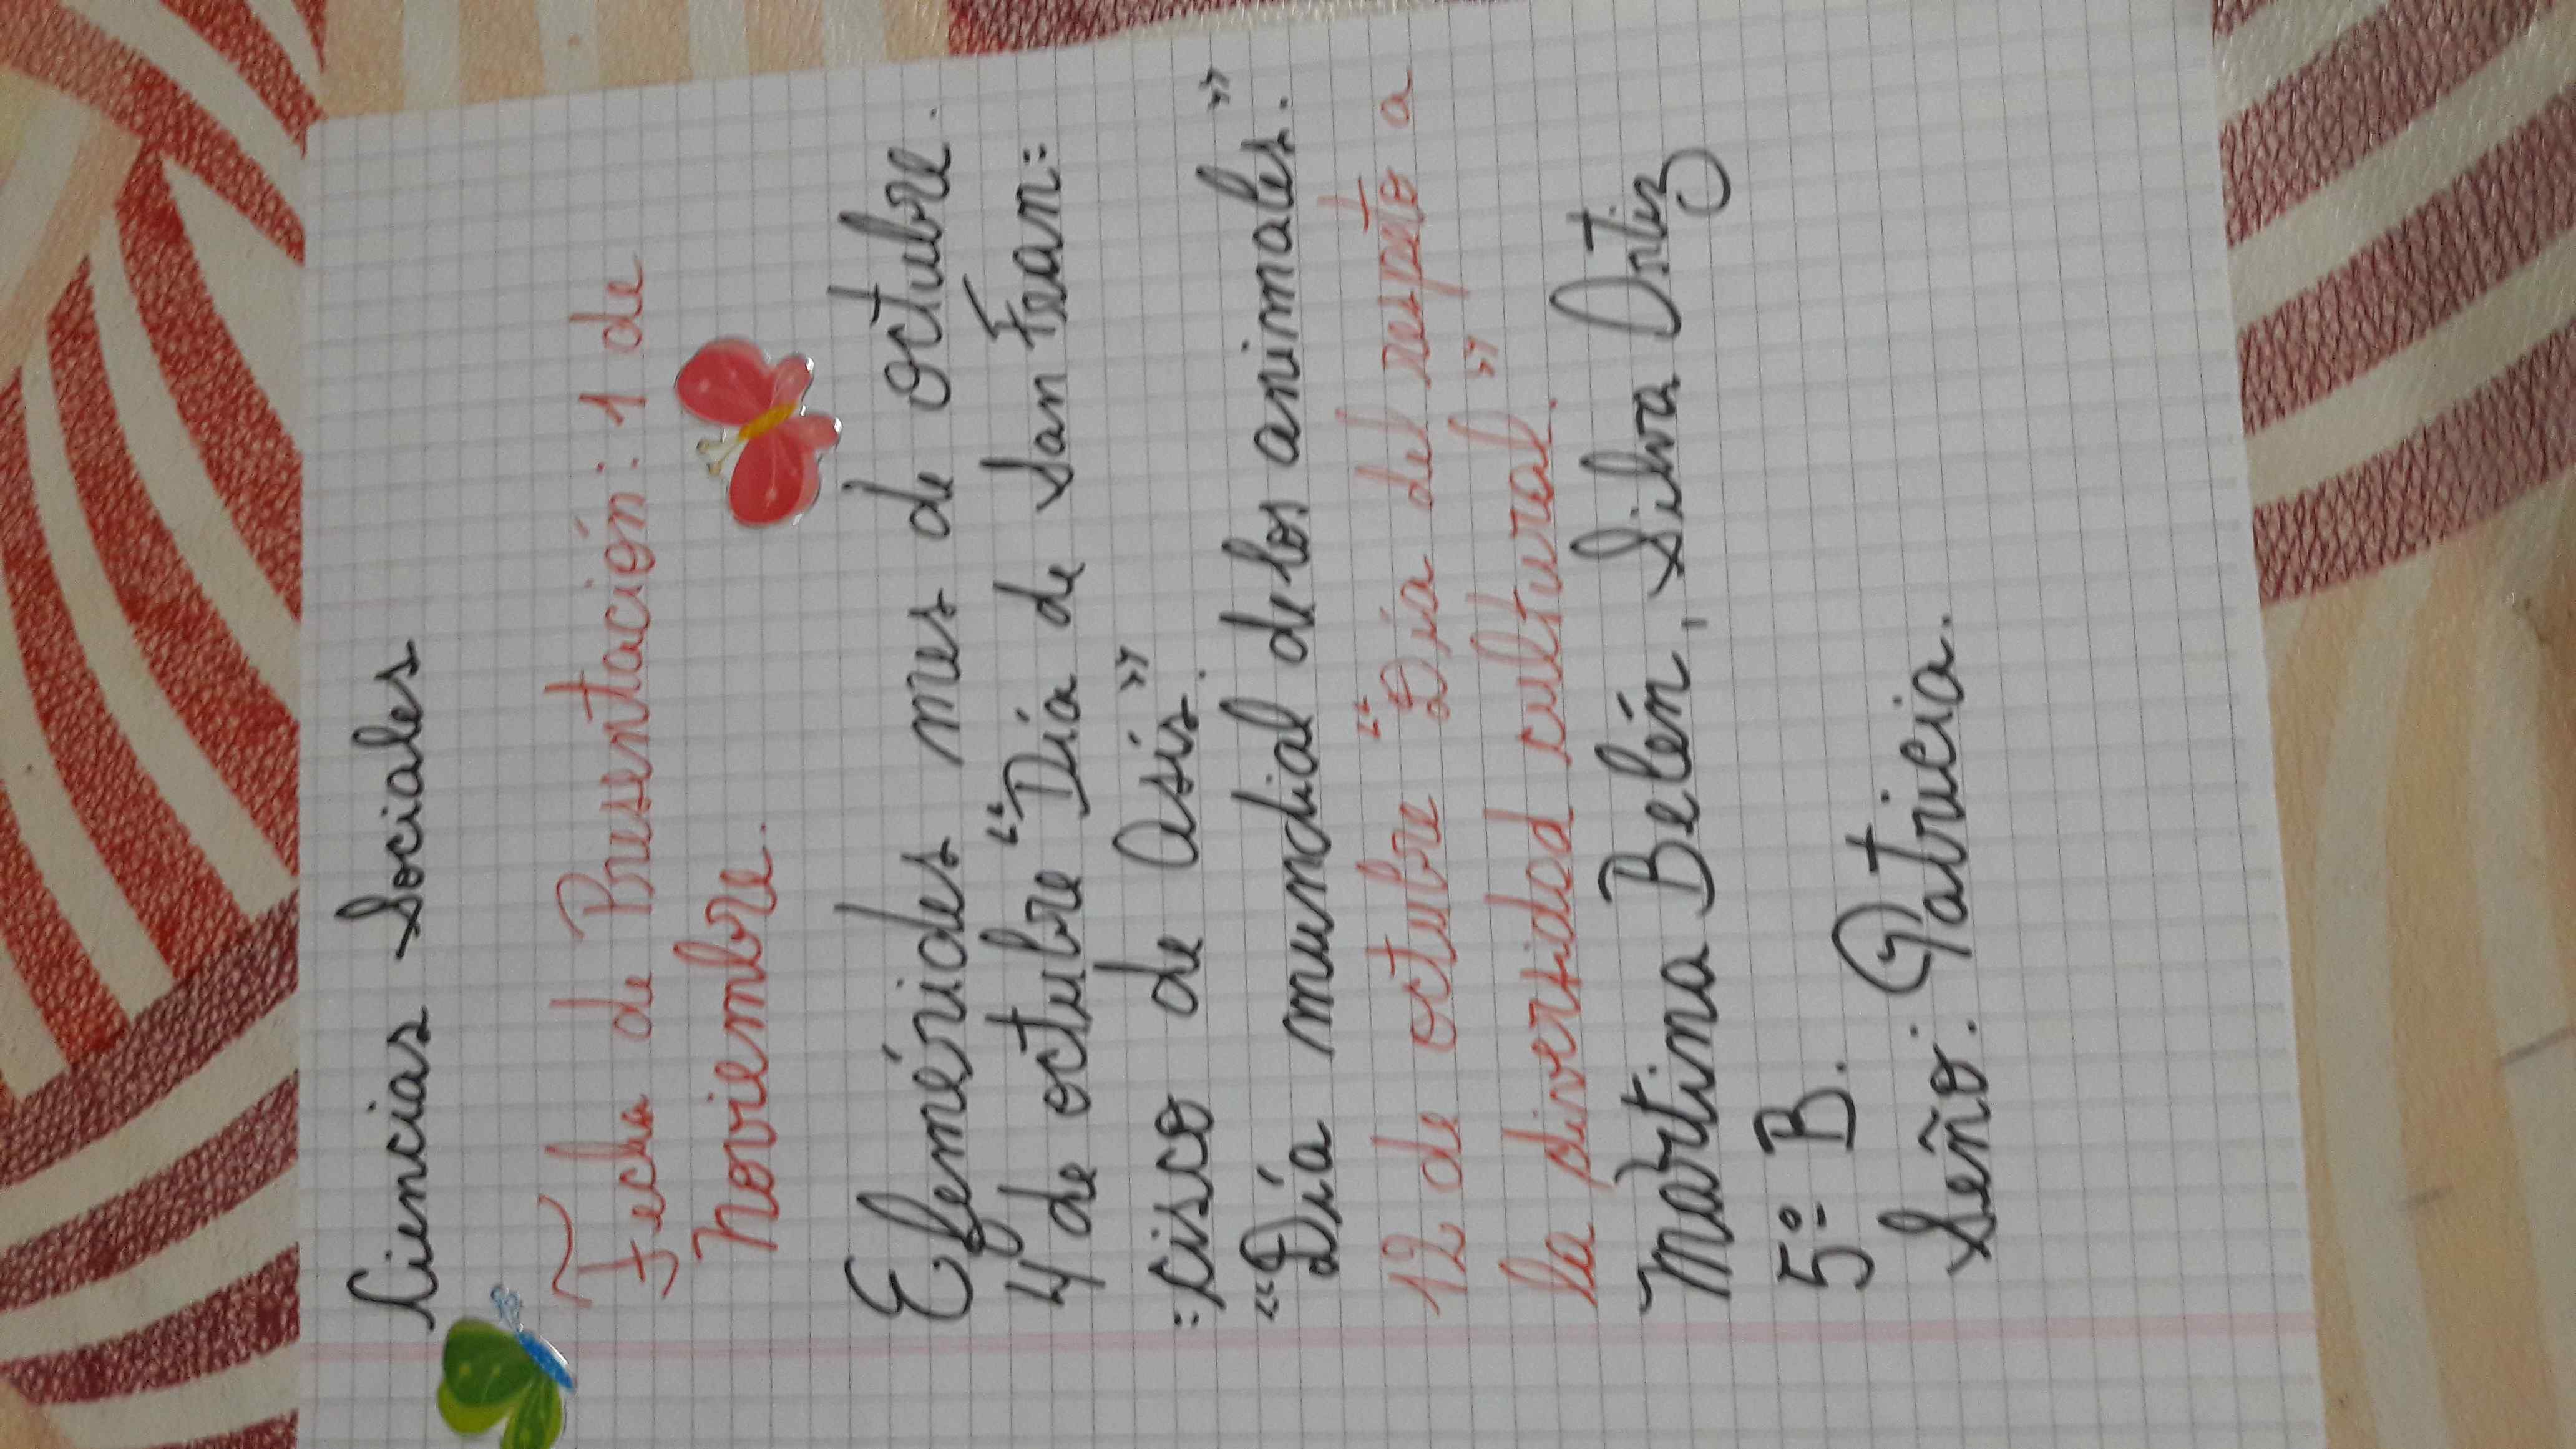 Ciencias Sociales
Fecha de Presentación: 1 de
Noviembre.
Efemérides mes de octubre.
4 de octubre "Día de San Fran=
=cisco de Asís."
"Día mundial de los animales."
12 de octubre "Día del respeto a
la diversidad cultural."
Martina Belén, Silva Ortiz
5º B.
Seño: Patricia.